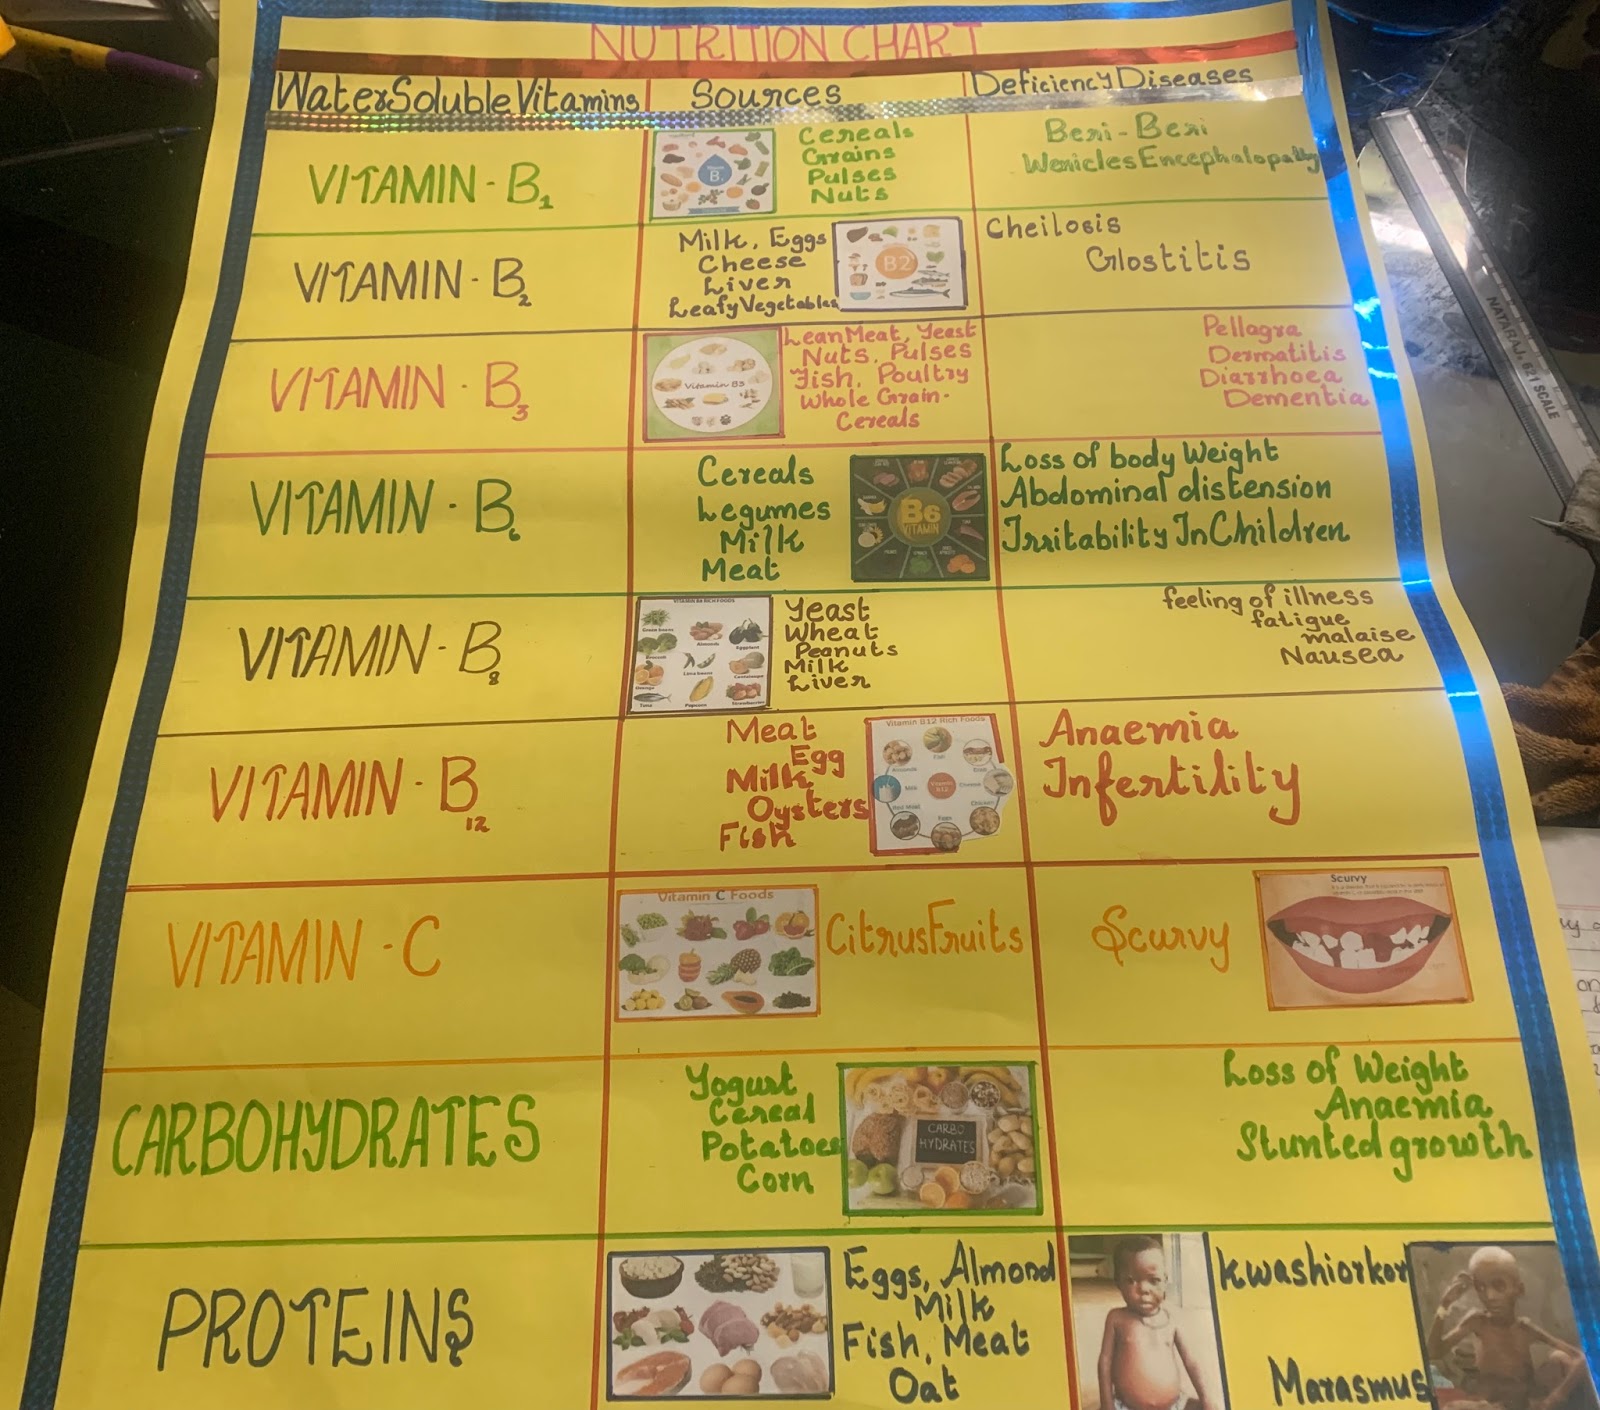 NUTRITION CHART
Water Soluble Vitamins Sources Deficiency Diseases
VITAMIN - B1
Vitamin
B1
Cereals
Grains
Pulses
Nuts
Beri - Beri
Wenicles Encephalopathy
VITAMIN - B2
Milk, Eggs
Cheese
Liver
Leafy Vegetables
B2
Cheilosis
Glostitis
VITAMIN - B3
Vitamin B3
Lean Meat, Yeast
Nuts, Pulses
Fish, Poultry
Whole Grain-
Cereals
Pellagra
Dermatitis
Diarrhoea
Dementia
VITAMIN - B6
Cereals
Legumes
Milk
Meat
B6
VITAMIN
Loss of body Weight
Abdominal distension
Irritability In Children
VITAMIN - B8
Green beans
Almonds
Eggplant
Broccoli
Lima beans
Cantaloupe
Orange
Tuna
Popcorn
Strawberries
Yeast
Wheat
Peanuts
Milk
Liver
feeling of illness
fatigue
malaise
Nausea
VITAMIN - B12
Meat
Egg
Milk
Oysters
Fish
Vitamin B12 Rich Foods
Fish
Almonds
Milk
Vitamin
B12
Cheese
Red Meat
Chicken
Eggs
Anaemia
Infertility
VITAMIN - C
Vitamin C Foods
Citrus Fruits
Scurvy
Scurvy
CARBOHYDRATES
Yogurt
Cereal
Potatoes
Corn
CARBO
HYDRATES
Loss of Weight
Anaemia
Stunted growth
PROTEINS
Eggs, Almond
Milk
Fish, Meat
Oat
Kwashiorkor
Marasmus
NATARAJ 621 SCALE